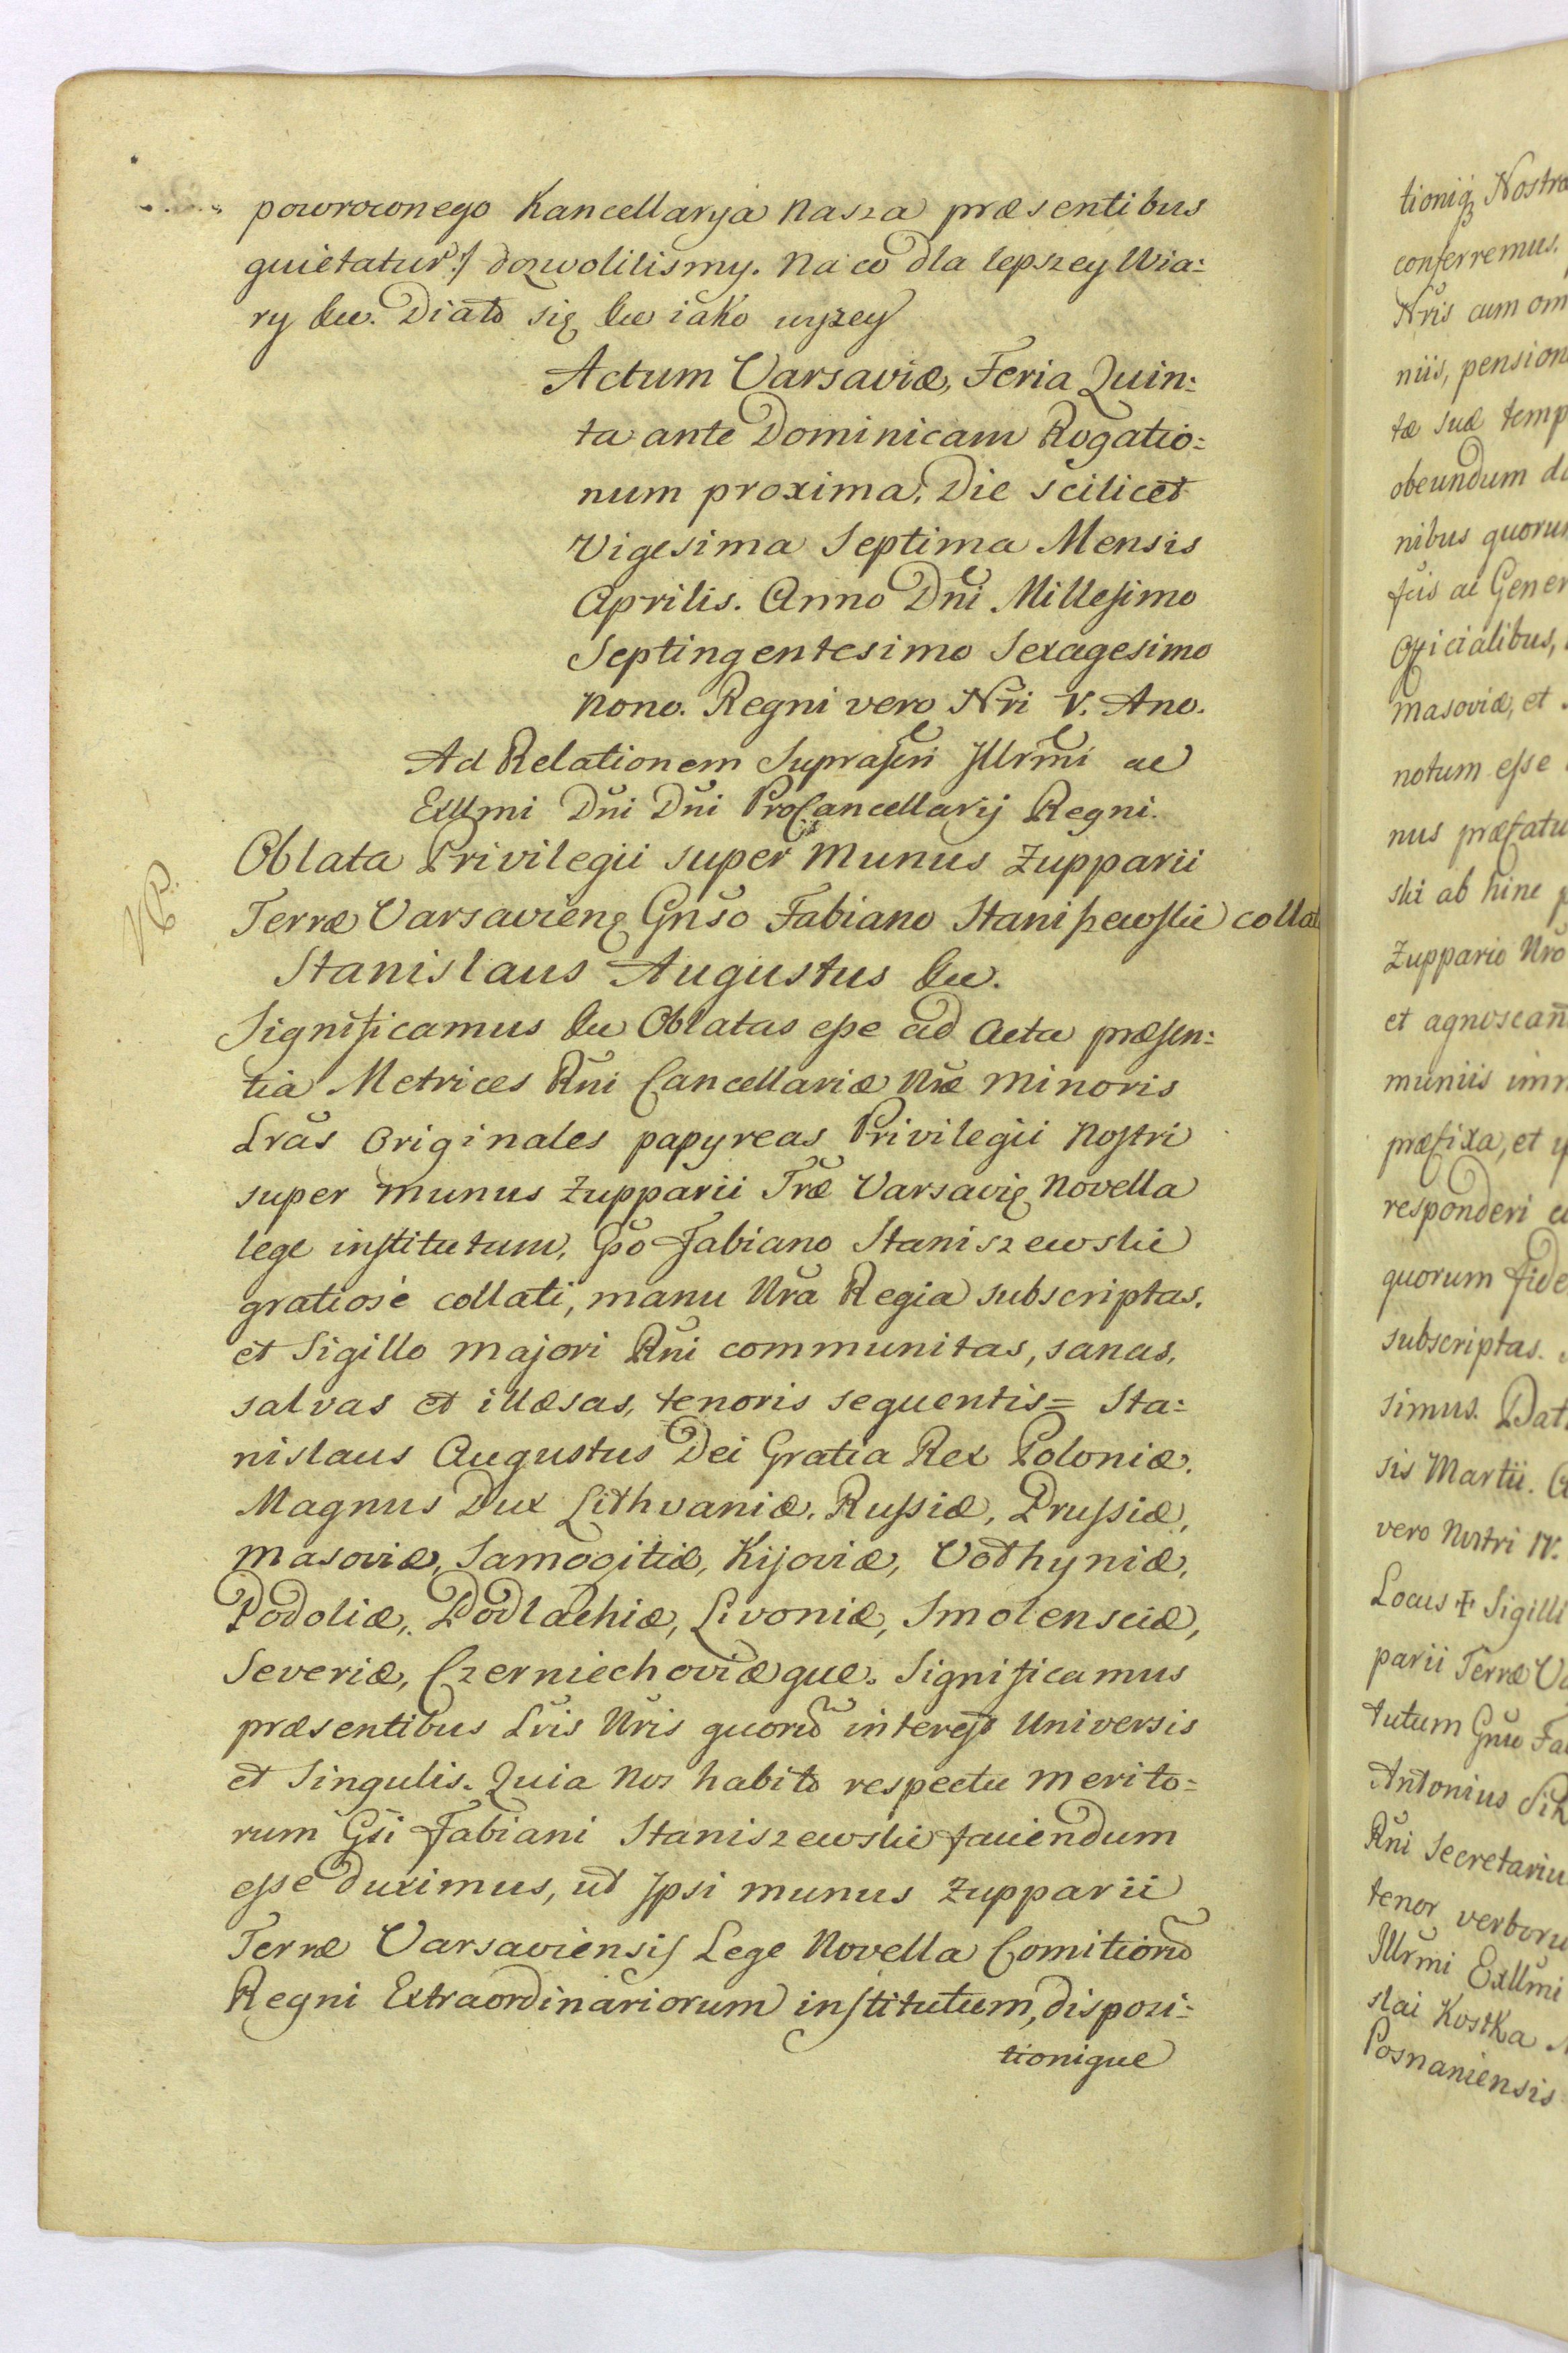 poworoconego Kancellaryja nasza præsentibus
quietatur:/ dozwolilismy. Na co dla lepszey Wia:
ry &c. Diało się &c iako wyzey
Actum Varsaviæ, Feria Quin:
ta ante Dominicam Rogatio:
num proxima, Die scilicet
Vigesima Septima Mensis
Aprilis. Anno Dni Millesimo
Septingentesimo Sexagesimo
Nono. Regni vero Nri V. Ano.
Ad Relationem Suprascri Illrmi ac
Exllmi Dni Dni ProCancellarij Regni.
NB.
Oblata Privilegii super Munus Zupparii
Terræ Varsavienę Gnso Fabiano Staniszewski colla
Stanislaus Augustus &c.
Significamus &c Oblatas esse ad Acta præsen:
tia Metrices Rni Cancellariæ Nræ Minoris
Lras Originales papyreas Privilegii Nostri
super munus Zupparii Træ Varsavię Novella
lege institutum, Gso Fabiano Staniszewski
gratiosé collati, manu Nra Regia subscriptas,
et Sigillo majori Rni communitas, sanas,
salvas et illæsas, tenoris sequentis= Sta:
nislaus Augustus Dei Gratia Rex Poloniæ,
Magnus Dux Lithvaniæ, Russiæ, Prussiæ,
Masoviæ, Samogitiæ, Kijoviæ, Volhyniæ,
Podoliæ, Podlachiæ, Livoniæ, Smolensciæ,
Severiæ, Czerniechoviæque. Significamus
præsentibus Lris Nris quorũ interest Universis
et Singulis. Quia Nos habito respectu merito:
rum Gsi Fabiani Staniszewski faciendum
esse duximus, ut Ipsi munus Zupparii
Terræ Varsaviensis Lege Novella Comitiorũ
Regni Extraordinariorum institutum, disposi:
tionique
tioniq Nostræ
conferremus.
Nris cum om
niis, pension
tæ suæ temp
obeundum d
nibus quorum
ac Gener
Officialibus,
Masoviæ, et
notum esse
nus præfatu
ski ab hinc p
Zuppario Nro
et agnoscañ
muniis imm
præfixa, et
responderi
quorum fide
subscriptas.
simus. Dat.
sis Martii. A
vero Nostri IV.
Locus + Sigilli
parii Terræ Va
tutum Gnso Fa
Antonius Sik
Rni Secretariu
tenor verboru
Illrmi Exllmi
slai Kostka
Posnaniensis